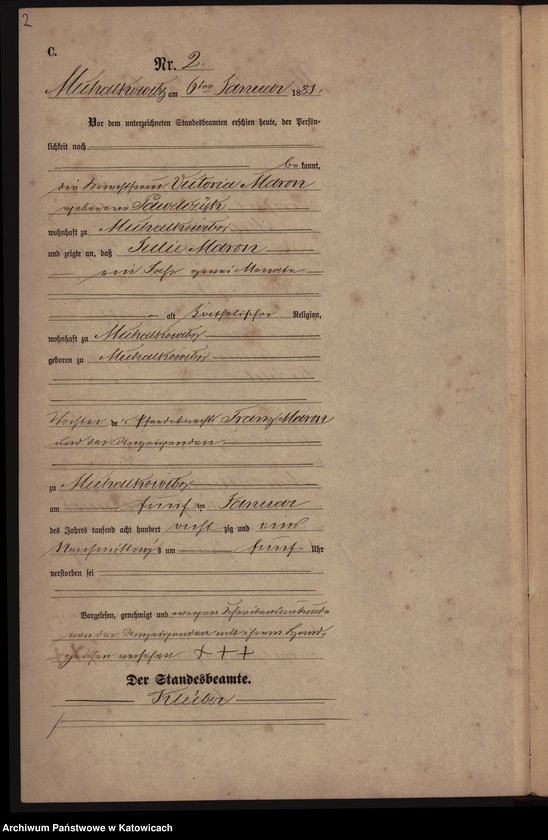 2
C.
Nr. 2.
Michalkowitz am 6ten Januar 1881.
Vor dem unterzeichneten Standesbeamten erschien heute, der Persön-
lichkeit nach
bekannt,
die Knechtfrau Victoria Maron
geborene
wohnhaft zu Michalkowitz
und zeigte an, daß Julie Maron
ein Jahr zwei Monate
alt katholischer Religion,
wohnhaft zu Michalkowitz
geboren zu Michalkowitz
Tochter des Pferdeknecht Franz Maron
und der Anzeigenden
zu Michalkowitz
am fünf ten Januar
des Jahres tausend acht hundert acht zig und eins
Nachmittags um fünf Uhr
verstorben sei
Vorgelesen, genehmigt und wegen Schreibensunkunde
von der Anzeigenden mit ihrem Hand-
zeichen versehen + + +
Der Standesbeamte.
Archiwum Państwowe w Katowicach